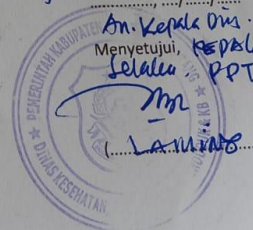 An. Kepala Din
Menyetujui, KEPAL
Selaku PPT
(...... LAMING
PEMERINTAH KABUPATEN
DINAS KESEHATAN,
& KB